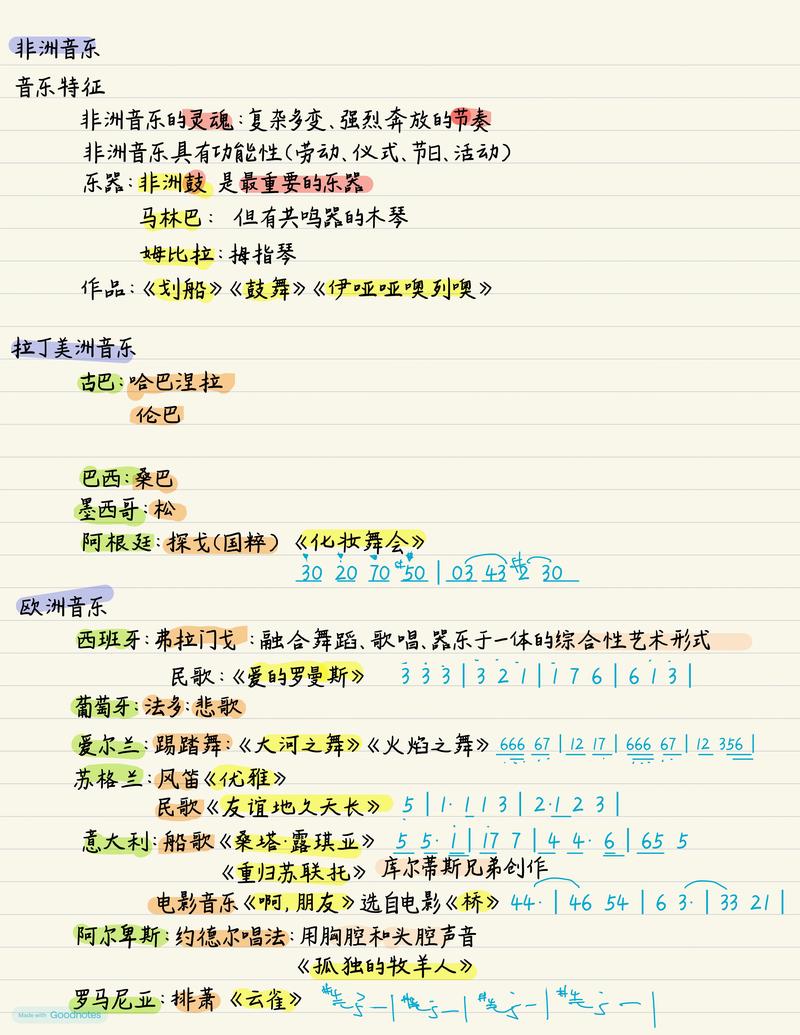 非洲音乐
音乐特征
非洲音乐的灵魂：复杂多变、强烈奔放的节奏
非洲音乐具有功能性（劳动、仪式、节日、活动）
乐器：非洲鼓 是最重要的乐器
马林巴： 但有共鸣器的木琴
姆比拉：拇指琴
作品：《划船》《鼓舞》《伊哑哑噢列噢》
拉丁美洲音乐
古巴：哈巴涅拉
伦巴
巴西：桑巴
墨西哥：松
阿根廷：探戈（国粹）《化妆舞会》
30 20 70 #50 | 03 43 #2 30
欧洲音乐
西班牙：弗拉门戈：融合舞蹈、歌唱、器乐于一体的综合性艺术形式
民歌：《爱的罗曼斯》 3 3 3 | 3 2 1 | 1 7 6 | 6 1 3 |
葡萄牙：法多：悲歌
爱尔兰：踢踏舞：《大河之舞》《火焰之舞》 666 67 | 12 17 | 666 67 | 12 356 |
苏格兰：风笛《优雅》
民歌《友谊地久天长》 5 | 1· 1 1 3 | 2· 1 2 3 |
意大利：船歌《桑塔·露琪亚》 5 5· 1 | 17 7 | 4 4· 6 | 65 5
《重归苏联托》 库尔蒂斯兄弟创作
电影音乐《啊，朋友》选自电影《桥》 44· | 46 54 | 6 3· | 33 21 |
阿尔卑斯：约德尔唱法：用胸腔和头腔声音
《孤独的牧羊人》
罗马尼亚：排萧《云雀》
Made with Goodnotes